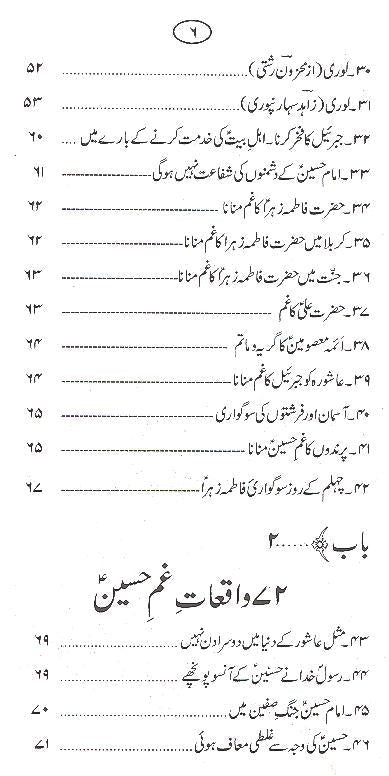 ۶
۳۰۔ لوری (از محزون رشتی) ۵۲
۳۱۔ لوری (زاہد سہارنپوری) ۵۳
۳۲۔ جبرئیل کا فخر کرنا۔ اہلِ بیتؑ کی خدمت کرنے کے بارے میں ۶۰
۳۳۔ امام حسینؑ کے دشمنوں کی شفاعت نہیں ہوگی ۶۱
۳۴۔ حضرت فاطمہ زہراؑ کا غم منانا ۶۲
۳۵۔ کربلا میں حضرت فاطمہ زہراؑ کا غم منانا ۶۲
۳۶۔ جنّت میں حضرت فاطمہ زہراؑ کا غم منانا ۶۳
۳۷۔ حضرت علیؑ کا غم ۶۳
۳۸۔ ائمہ معصومینؑ کا گریہ و ماتم ۶۴
۳۹۔ عاشورہ کو جبرئیل کا غم منانا ۶۴
۴۰۔ آسمان اور فرشتوں کی سوگواری ۶۵
۴۱۔ پرندوں کا غمِ حسینؑ منانا ۶۵
۴۲۔ چہلم کے روز سوگواریٔ فاطمہ زہراؑ ۶۷
باب ﴾......۲
۷۲ واقعاتِ غمِ حسینؑ
۴۳۔ مثل عاشور کے دنیا میں دوسرا دن نہیں ۶۹
۴۴۔ رسولؐ خدا نے حسنینؑ کے آنسو پونچھے ۶۹
۴۵۔ امام حسینؑ جنگِ صفین میں ۷۰
۴۶۔ حسینؑ کی وجہ سے غلطی معاف ہوئی ۷۱